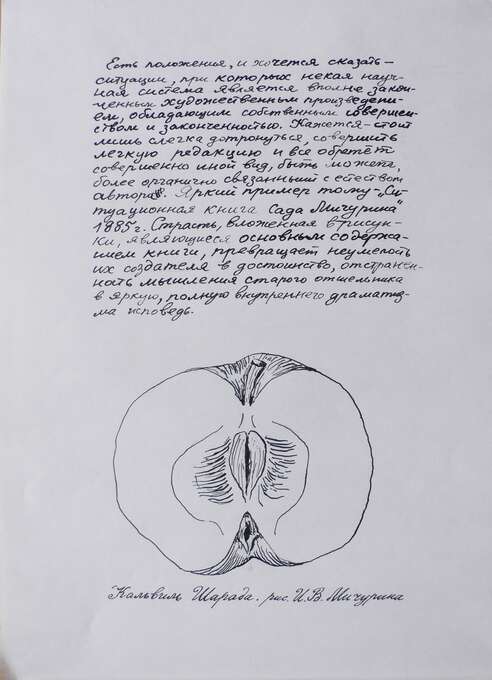 Есть положения, и хочется сказать-
ситуации, при которых некая науч-
ная система является вполне закон-
ченным художественным произведени-
ем, обладающим собственным совершен-
ством и законченностью. Кажется-стоит
лишь слегка дотронуться, совершить
легкую редакцию и все обретёт
совершенно иной вид, быть может,
более органично связанный с естеством
автора. Яркий пример тому-„Си-
туационная книга Сада Мичурина"
1885 г. Страсть, вложенная в рисун-
ки, являющиеся основным содержа-
нием книги, превращает неумелость
их создателя в достоинство, отстранен-
ность мышления старого отшельника
в яркую, полную внутреннего драматиз-
ма исповедь.
Кальвиль Шарада. рис. И.В. Мичурина